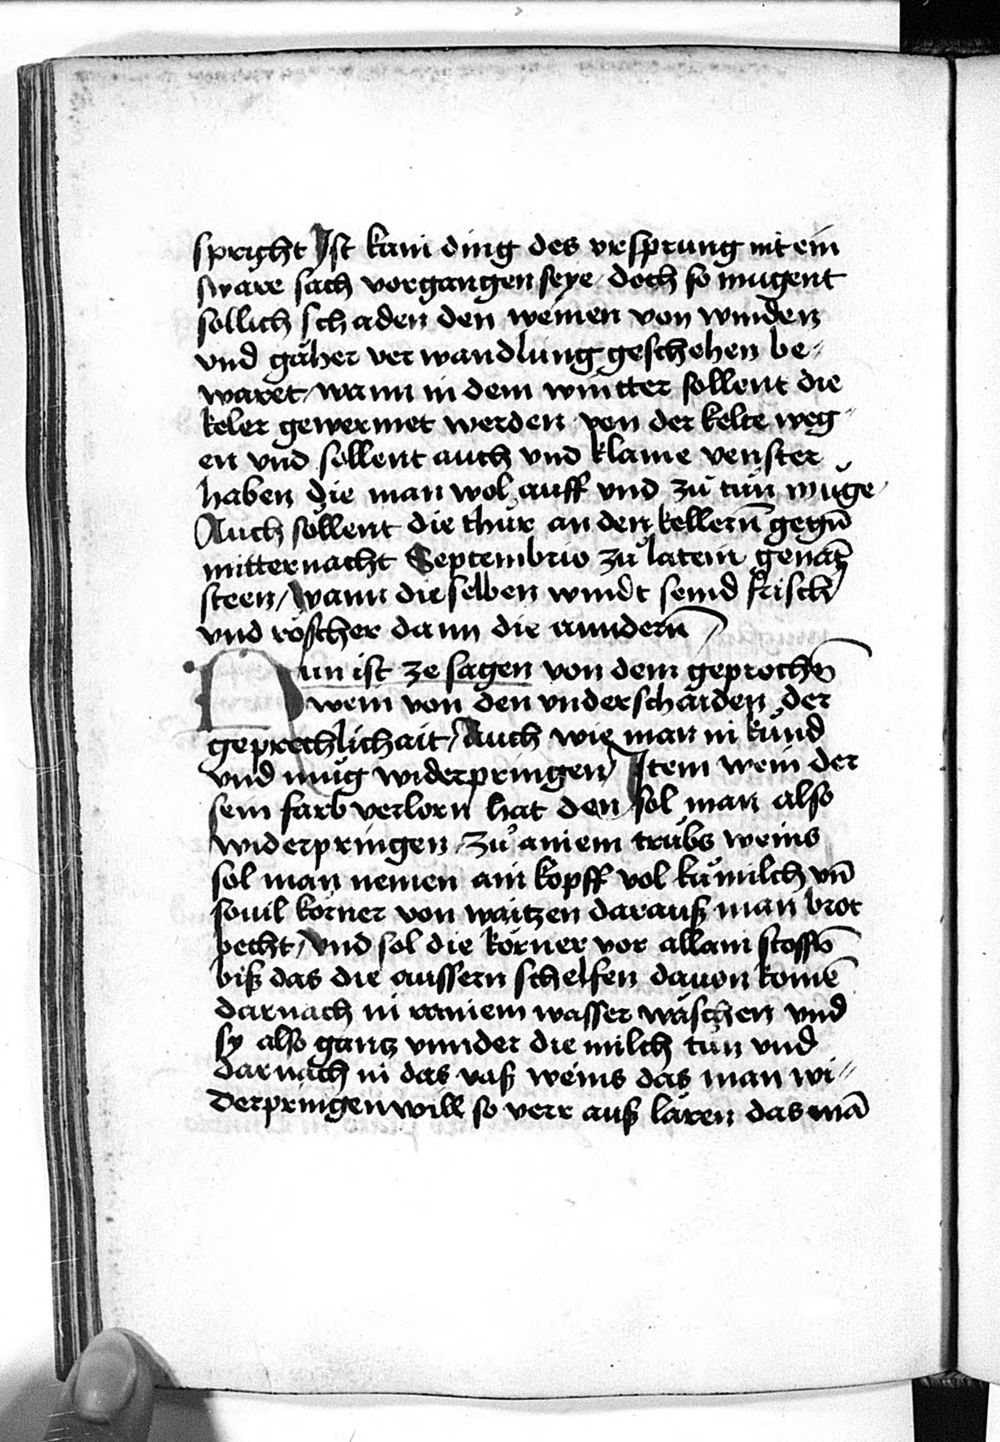 spricht Ist kain ding des vrsprung nit ein
sware sach vorgangen seye / doch so mugent
sollich schaden den weinen von winden
vnd gäher verwandlung geschehen be„
waret / wann in dem wintter sollent die
keler gewermet werden von der kelte weg„
en vnd sollent auch vnd klaine venster
haben die man wol auff vnd zů tůn muge
Auch sollent die thür an den kellern̄ gegn̄
mitternacht Septembrio zů latein genāt
steen / wann die selben windt seind frisch
vnd röscher dann die anndern
Nun ist ze sagen von dem geprochē
wein von den vnderschaiden der
geprechlichait / Auch wie man in künd
vnd mug widerpringen Item wein der
sein farb verlorn hat den sol man also
widerpringen / zů ainem trübs weins
sol man nemen ain kopff vol kümilch vn̄
souil körner von waitzen darauß man brot
pecht / vnd sol die körner vor allain stossē
biß das die aussern schelfen dauon komē
darnach in rainem wasser wäschen vnd
sy also gantz vnnder die milch tůn vnd
darnach in das vaß weins das man wi„
derpringen will so verr auß lären das mā